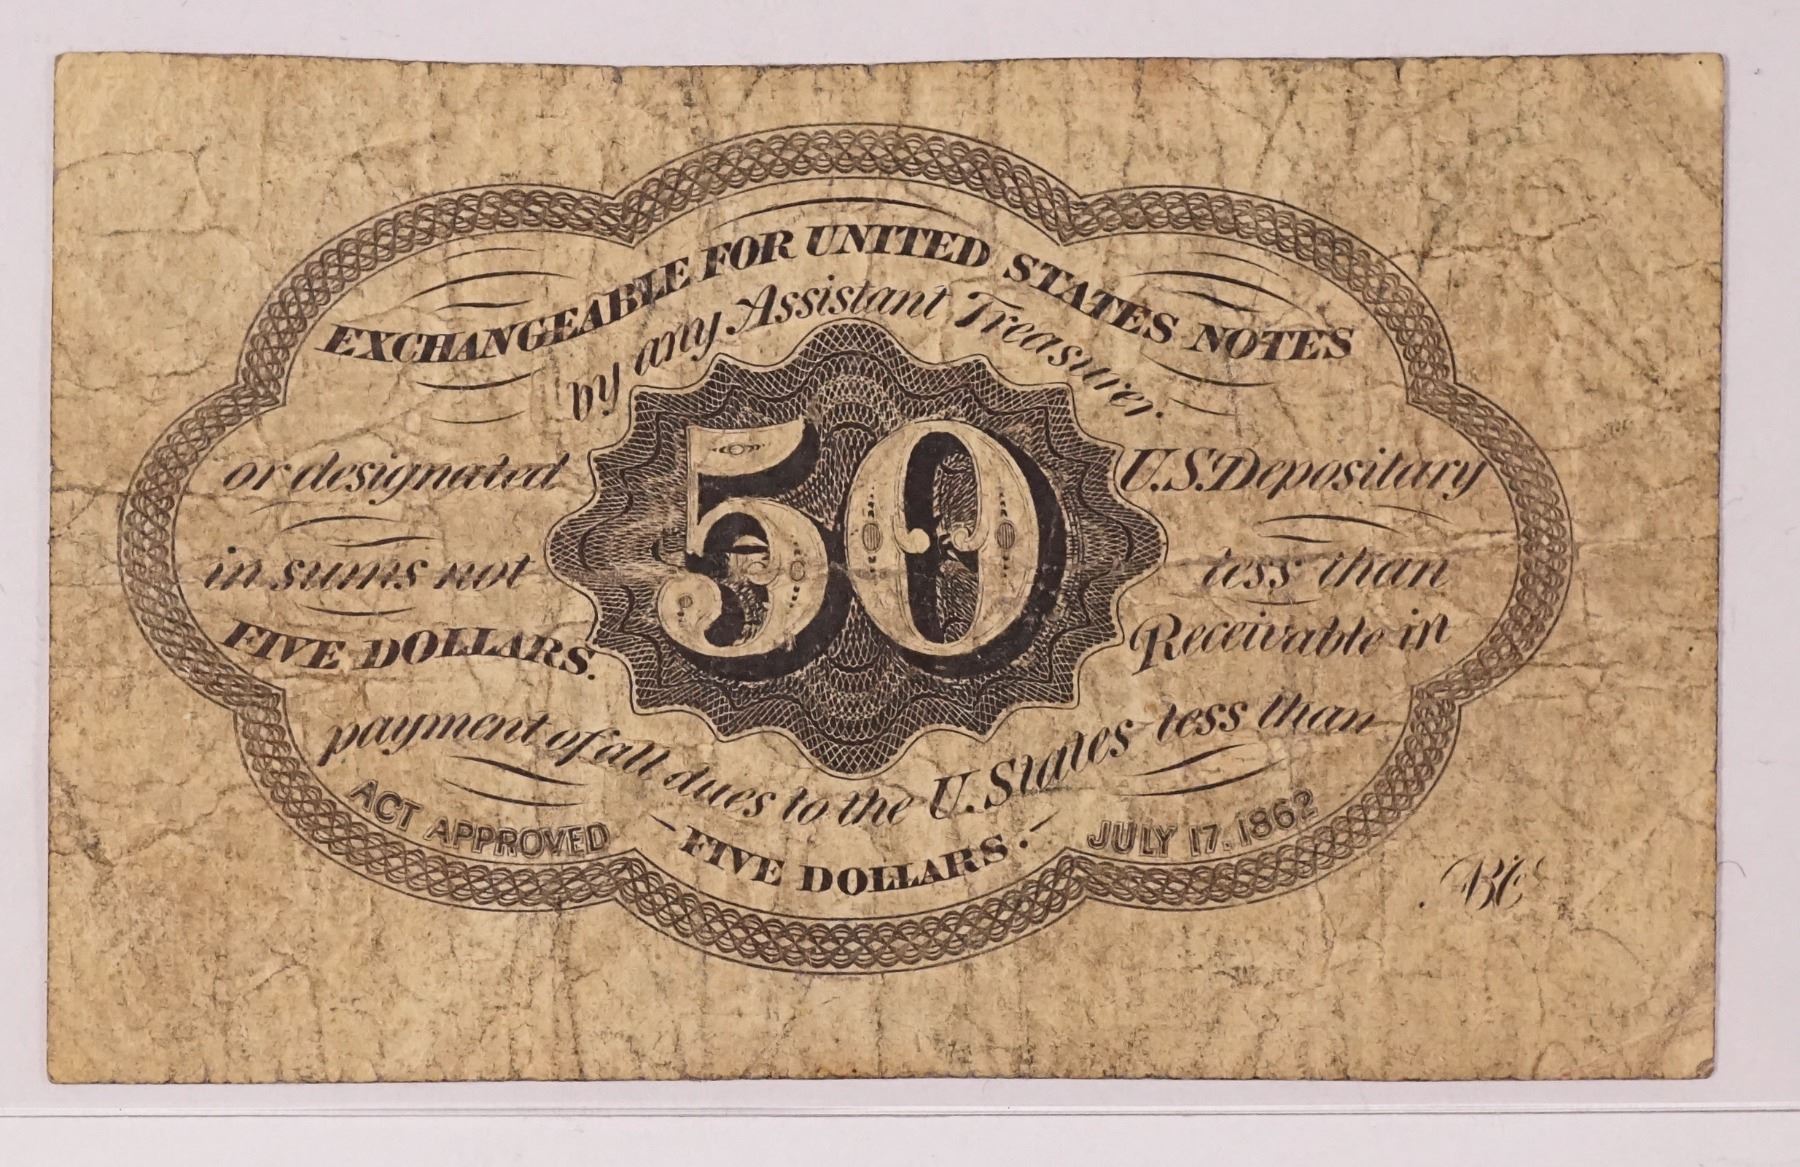 EXCHANGEABLE FOR UNITED STATES NOTES
by any Assistant Treasurer.
or designated U.S. Depositary
50
in sums not less than
FIVE DOLLARS. Receivable in
payment of all dues to the U. States less than
FIVE DOLLARS.
ACT APPROVED JULY 17. 1862